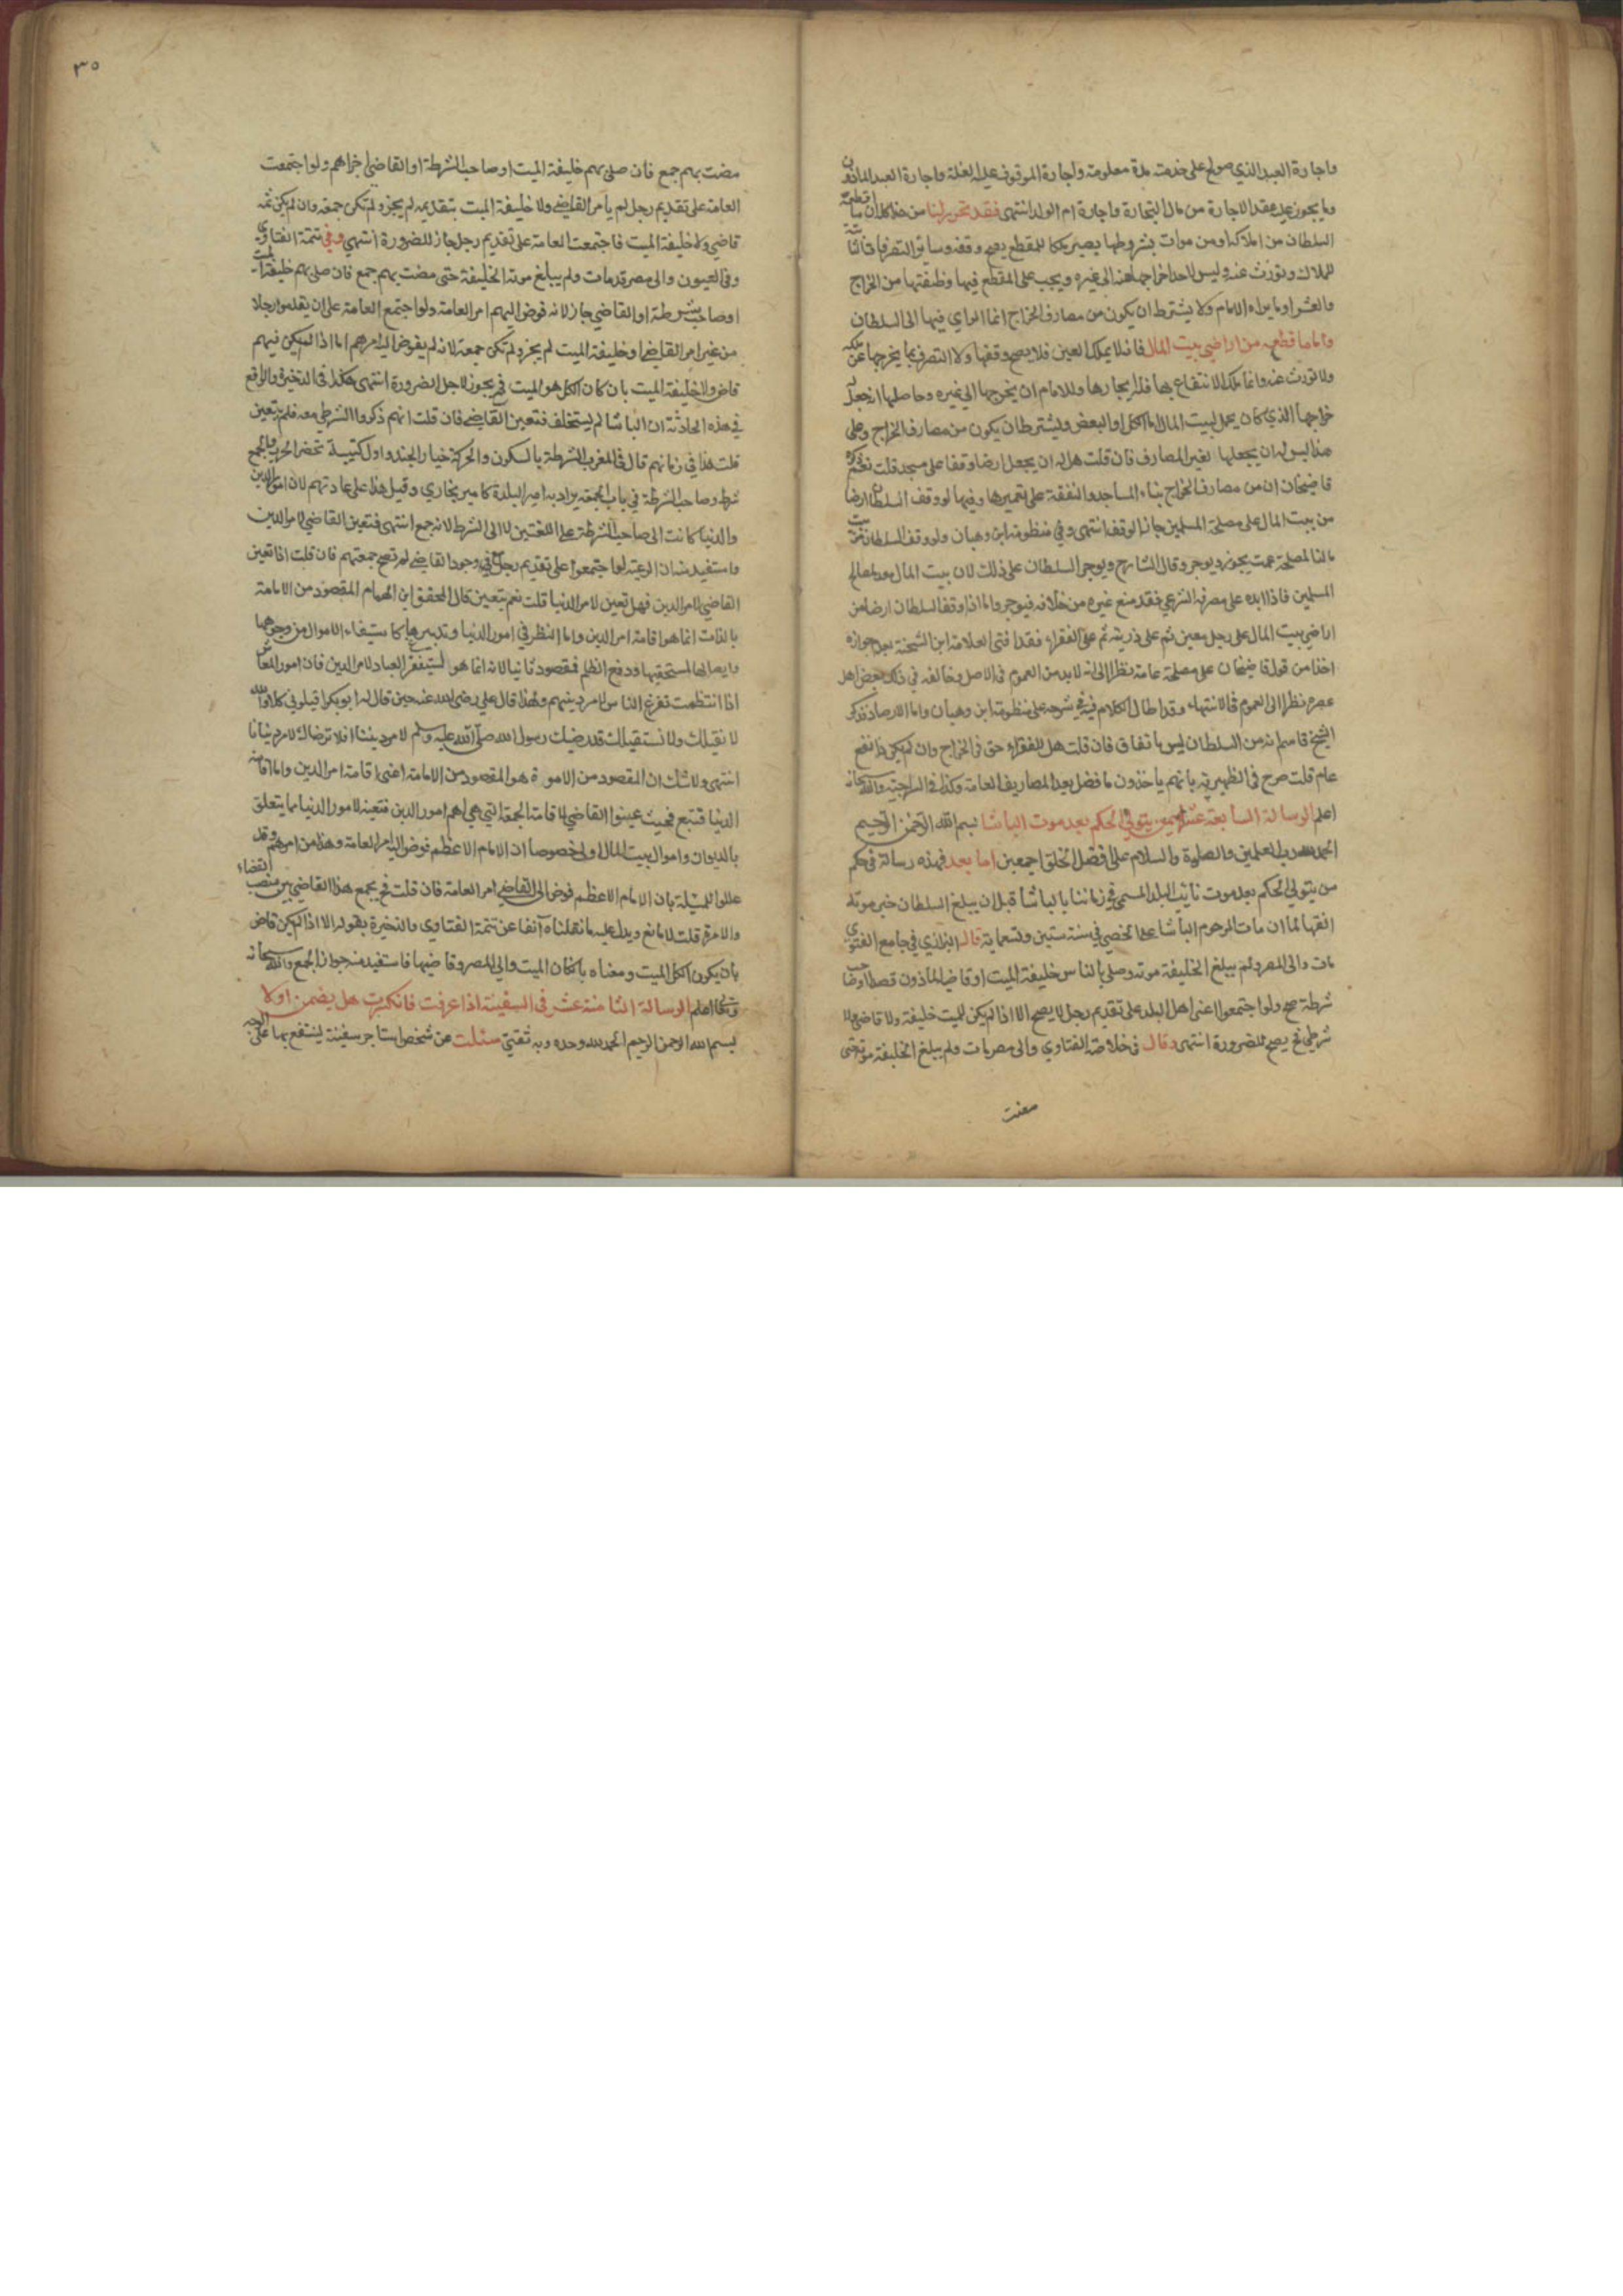 واجارة العبد الذي صولح على خدمته مدة معلومة واجارة الموقوف عليه الغلة واجارة العبد الماذون
وما يجوز عليه عقد الاجارة من مال التجارة واجارة ام الولد انتهى فقد تحرر لنا من هذا كله ان ما اقطعه
السلطان من املاكها ومن موات بشروطها يصير ملكا للمقطع يصح وقفه وسائر التصرفات
للملاك وتورث عنه وليس لاحد اخراجها عنه الى غيره ويجب على المقطع فيها وظيفتها من الخراج
والعشر او ما يراه الامام ولا يشترط ان يكون من مصارف الخراج انما الراي فيها الى السلطان
واما ما اقطعه من اراضي بيت المال فانه لا يملك العين فلا يصح وقفها ولا التصرف بما يخرجها عن ملكه
ولا تورث عنه وانما ملك الانتفاع بها فله ايجارها وللامام ان يخرجها الى غيره وحاصلها انه جعل له
خراجها الذي كان يحمل لبيت المال اما الكل او البعض ويشترط ان يكون من مصارف الخراج وعلى
هذا ليس له ان يجعلها لغير المصارف فان قلت هل له ان يجعل ارضا وقفا على مسجد قلت نعم ذكره
قاضيخان ان من مصارف الخراج بناء المساجد والنفقة على تعميرها وفيها لو وقف السلطان ارضا
من بيت المال على مصلحة المسلمين جاز الوقف انتهى وفي منظومة ابن وهبان ولو وقف السلطان من بيت
مالنا لمصلحة عمت يجوز ويوجر وقال الشارح ويوجر السلطان على ذلك لان بيت المال معد لمصالح
المسلمين فاذا ابده على مصرفه الشرعي فقد منع غيره من خلافه فيوجر واما اذا وقف السلطان ارضا من
اراضي بيت المال على رجل معين ثم على ذريته ثم على الفقراء فقد افتى العلامة ابن الشحنة بعدم جوازه
اخذا من قول قاضيخان على مصلحة عامة نظرا الى انه لا بد من العموم في الاصل وخالفه في ذلك بعض اهل
عصره نظرا الى العموم في الانتهاء وقد اطال الكلام فيه في شرحه على منظومة ابن وهبان واما الارصاد فذكر
الشيخ قاسم انه من السلطان ليس باتفاق فان قلت هل للفقراء حق في الخراج وان لم يكن ذا نفع
عام قلت صرح في الظهيرية بانهم ياخذون ما فضل بعد المصاريف العامة وكذا في السراجية والله سبحانه
اعلم الرسالة السابعة عشر فيمن يتولى الحكم بعد موت الباشا بسم الله الرحمن الرحيم
الحمد لله رب العلمين والصلوة والسلام على افضل الخلق اجمعين اما بعد فهذه رسالة في حكم
من يتولى الحكم بعد موت نائب البلد المسمى في زماننا بالباشا قبل ان يبلغ السلطان خبر موته
الفتها لما ان مات المرحوم الباشا علي الخصي في سنة ستين وتسعماية قال البزازي في جامع الفتوي
مات والى المصر ولم يبلغ الخليفة موته وصلى بالناس خليفة الميت او قاضيا ماذون قصدا او صاحب
شرطة صح ولو اجتمعوا اعني اهل البلد على تقديم رجل لا يصح الا اذا لم يكن للميت خليفة ولا قاضي ولا
شرطي فح يصح للضرورة انتهى وقال في خلاصة الفتاوي والى مصر مات ولم يبلغ الخليفة موته حتى
مضت
٣٥
مضت بهم جمع فان صلى بهم خليفة الميت او صاحب الشرطة او القاضي اجزاهم ولو اجتمعت
العامة على تقديم رجل لم يامر القاضي ولا خليفة الميت بتقديمه لم يجز ولم تكن جمعة وان لم يكن ثمه
قاضي ولا خليفة الميت فاجتمعت العامة على تقديم رجل جاز للضرورة انتهى وفي تتمة الفتاوى
وفي العيون والى مصر قد مات ولم يبلغ موته الخليفة حتى مضت بهم جمع فان صلى بهم خليفة الميت
او صاحب شرطة او القاضي جاز لانه فوض اليهم امر العامة ولو اجتمع العامة على ان يقدموا رجلا
من غير امر القاضي او خليفة الميت لم يجز ولم تكن جمعة لانه لم يفوض اليه امرهم اما اذا لم يكن فيهم
قاض ولا خليفة الميت بان كان الكل هو الميت فح يجوز لاجل الضرورة انتهى هكذا في الذخيرة والواقع
في هذه الحادثة ان الباشا لم يستخلف فتعين القاضي فان قلت انهم ذكروا الشرطي معه فلم يتعين
قلت هذا في زمانهم قال في المغرب الشرطة بالسكون والحركة خيار الجند واول كتيبة تحضر الحرب والجمع
شرط وصاحب الشرطة في باب الجمعة يراد به امير البلدة كامير بخاري وقيل هذا على عادتهم لان امور الدين
والدنيا كانت الى صاحب الشرطة على اللغتين لا الى الشرط لانه جمع انتهى فتعين القاضي لامر الدين
واستفيد منه ان الرعية لو اجتمعوا على تقديم رجل في وجود القاضي لم تصح جمعتهم فان قلت اذا تعين
القاضي لامر الدين فهل تعين لامر الدنيا قلت نعم يتعين قال المحقق ابن الهمام المقصود من الامامة
بالذات انما هو اقامة امر الدين واما النظر في امور الدنيا وتدبيرها كاستيفاء الاموال من وجوهها
وايصالها لمستحقيها ودفع الظلم فمقصود ثانيا لانه انما هو ليتفرغ العباد لامر الدين فان امور المعاش
اذا انتظمت تفرغ الناس لامر دينهم ولهذا قال علي رضي الله عنه حين قال له ابو بكر اقيلوني كلا والله
لا نقيلك ولا نستقيلك قد رضيك رسول الله صلى الله عليه وسلم لامر ديننا افلا نرضاك لامر دنيانا
انتهى ولا شك ان المقصود من الامرة هو المقصود من الامامة اعني اقامة امر الدين واما اقامة
الدنيا فتبع فحيث عينوا القاضي لاقامة الجمعة التي هي اهم امور الدين فتعينه لامور الدنيا مما يتعلق
بالديوان واموال بيت المال اولى خصوصا ان الامام الاعظم فوض اليه امر العامة وهذا من امرهم وقد
عللوا المسئلة بان الامام الاعظم فوض الى القاضي امر العامة فان قلت فح يجمع هذا القاضي بين منصب القضاء
والامرة قلت لا مانع ويدل عليه ما نقلناه آنفا عن تتمة الفتاوي والذخيرة بقوله الا اذا لم يكن قاض
بان يكون الكل الميت ومعناه بان كان الميت والي المصر وقاضيها فاستفيد منه جواز الجمع والله سبحانه
وتعالى اعلم الرسالة الثامنة عشر في السفينة اذا غرقت فانكسرت هل يضمن او لا
بسم الله الرحمن الرحيم الحمد لله وحده وبه ثقتي سئلت عن شخص استاجر سفينة لينتفع بها على الوجه